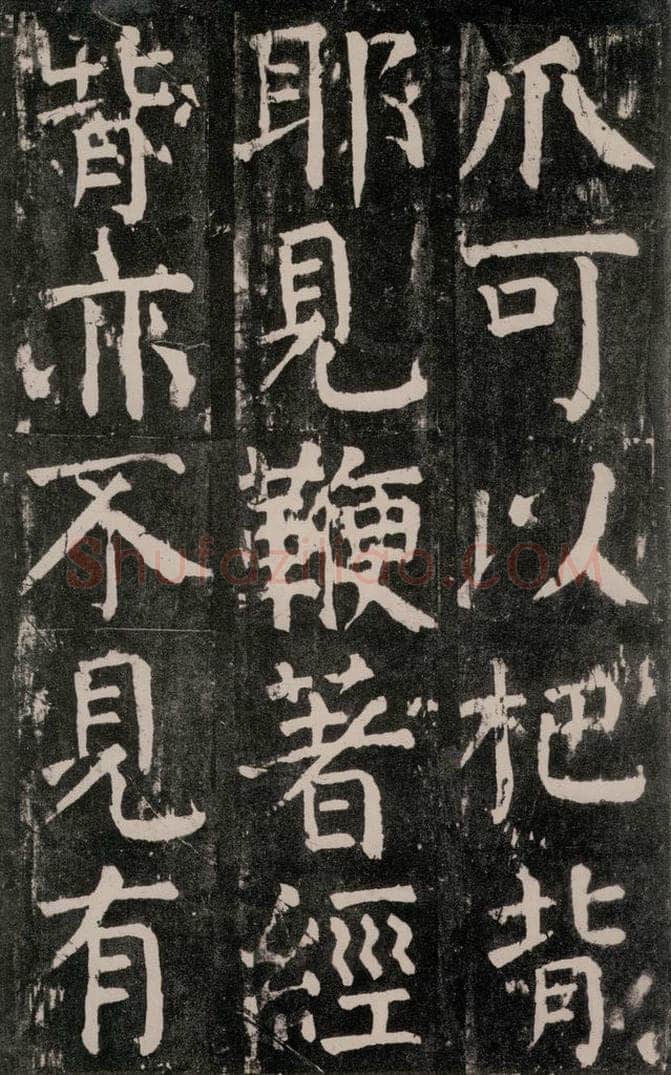 爪可以把背
耶見鞭著經
背亦不見有
Shufaziliao.COM